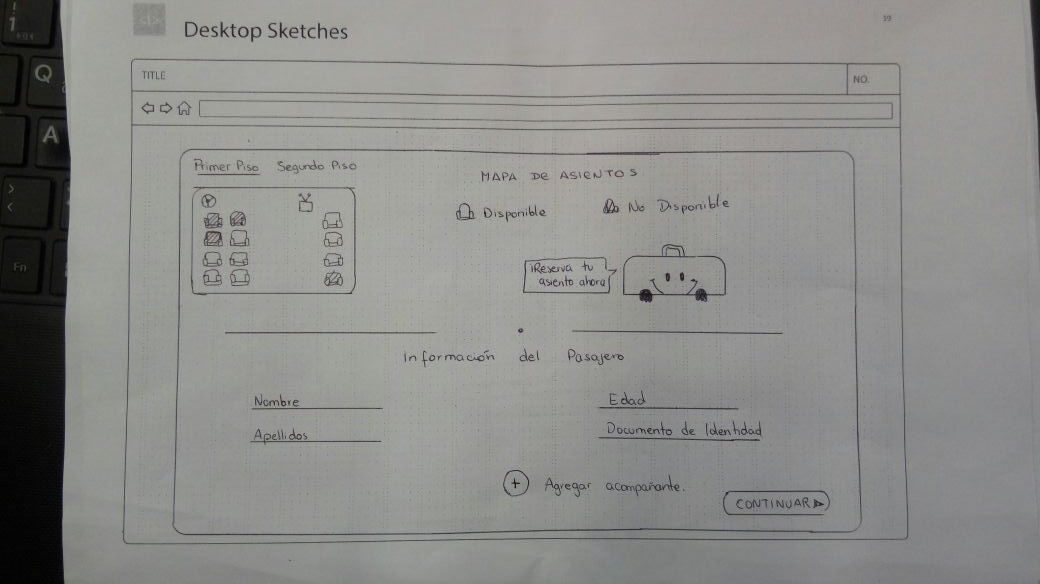 1
Q
A
>
<
Fn
</>
Desktop Sketches
59
TITLE
NO.
Primer Piso Segundo Piso
MAPA DE ASIENTOS
Disponible
No Disponible
¡Reserva tu
asiento ahora
Información del Pasajero
Nombre
Edad
Apellidos
Documento de Identidad
+ Agregar acompañante.
CONTINUAR